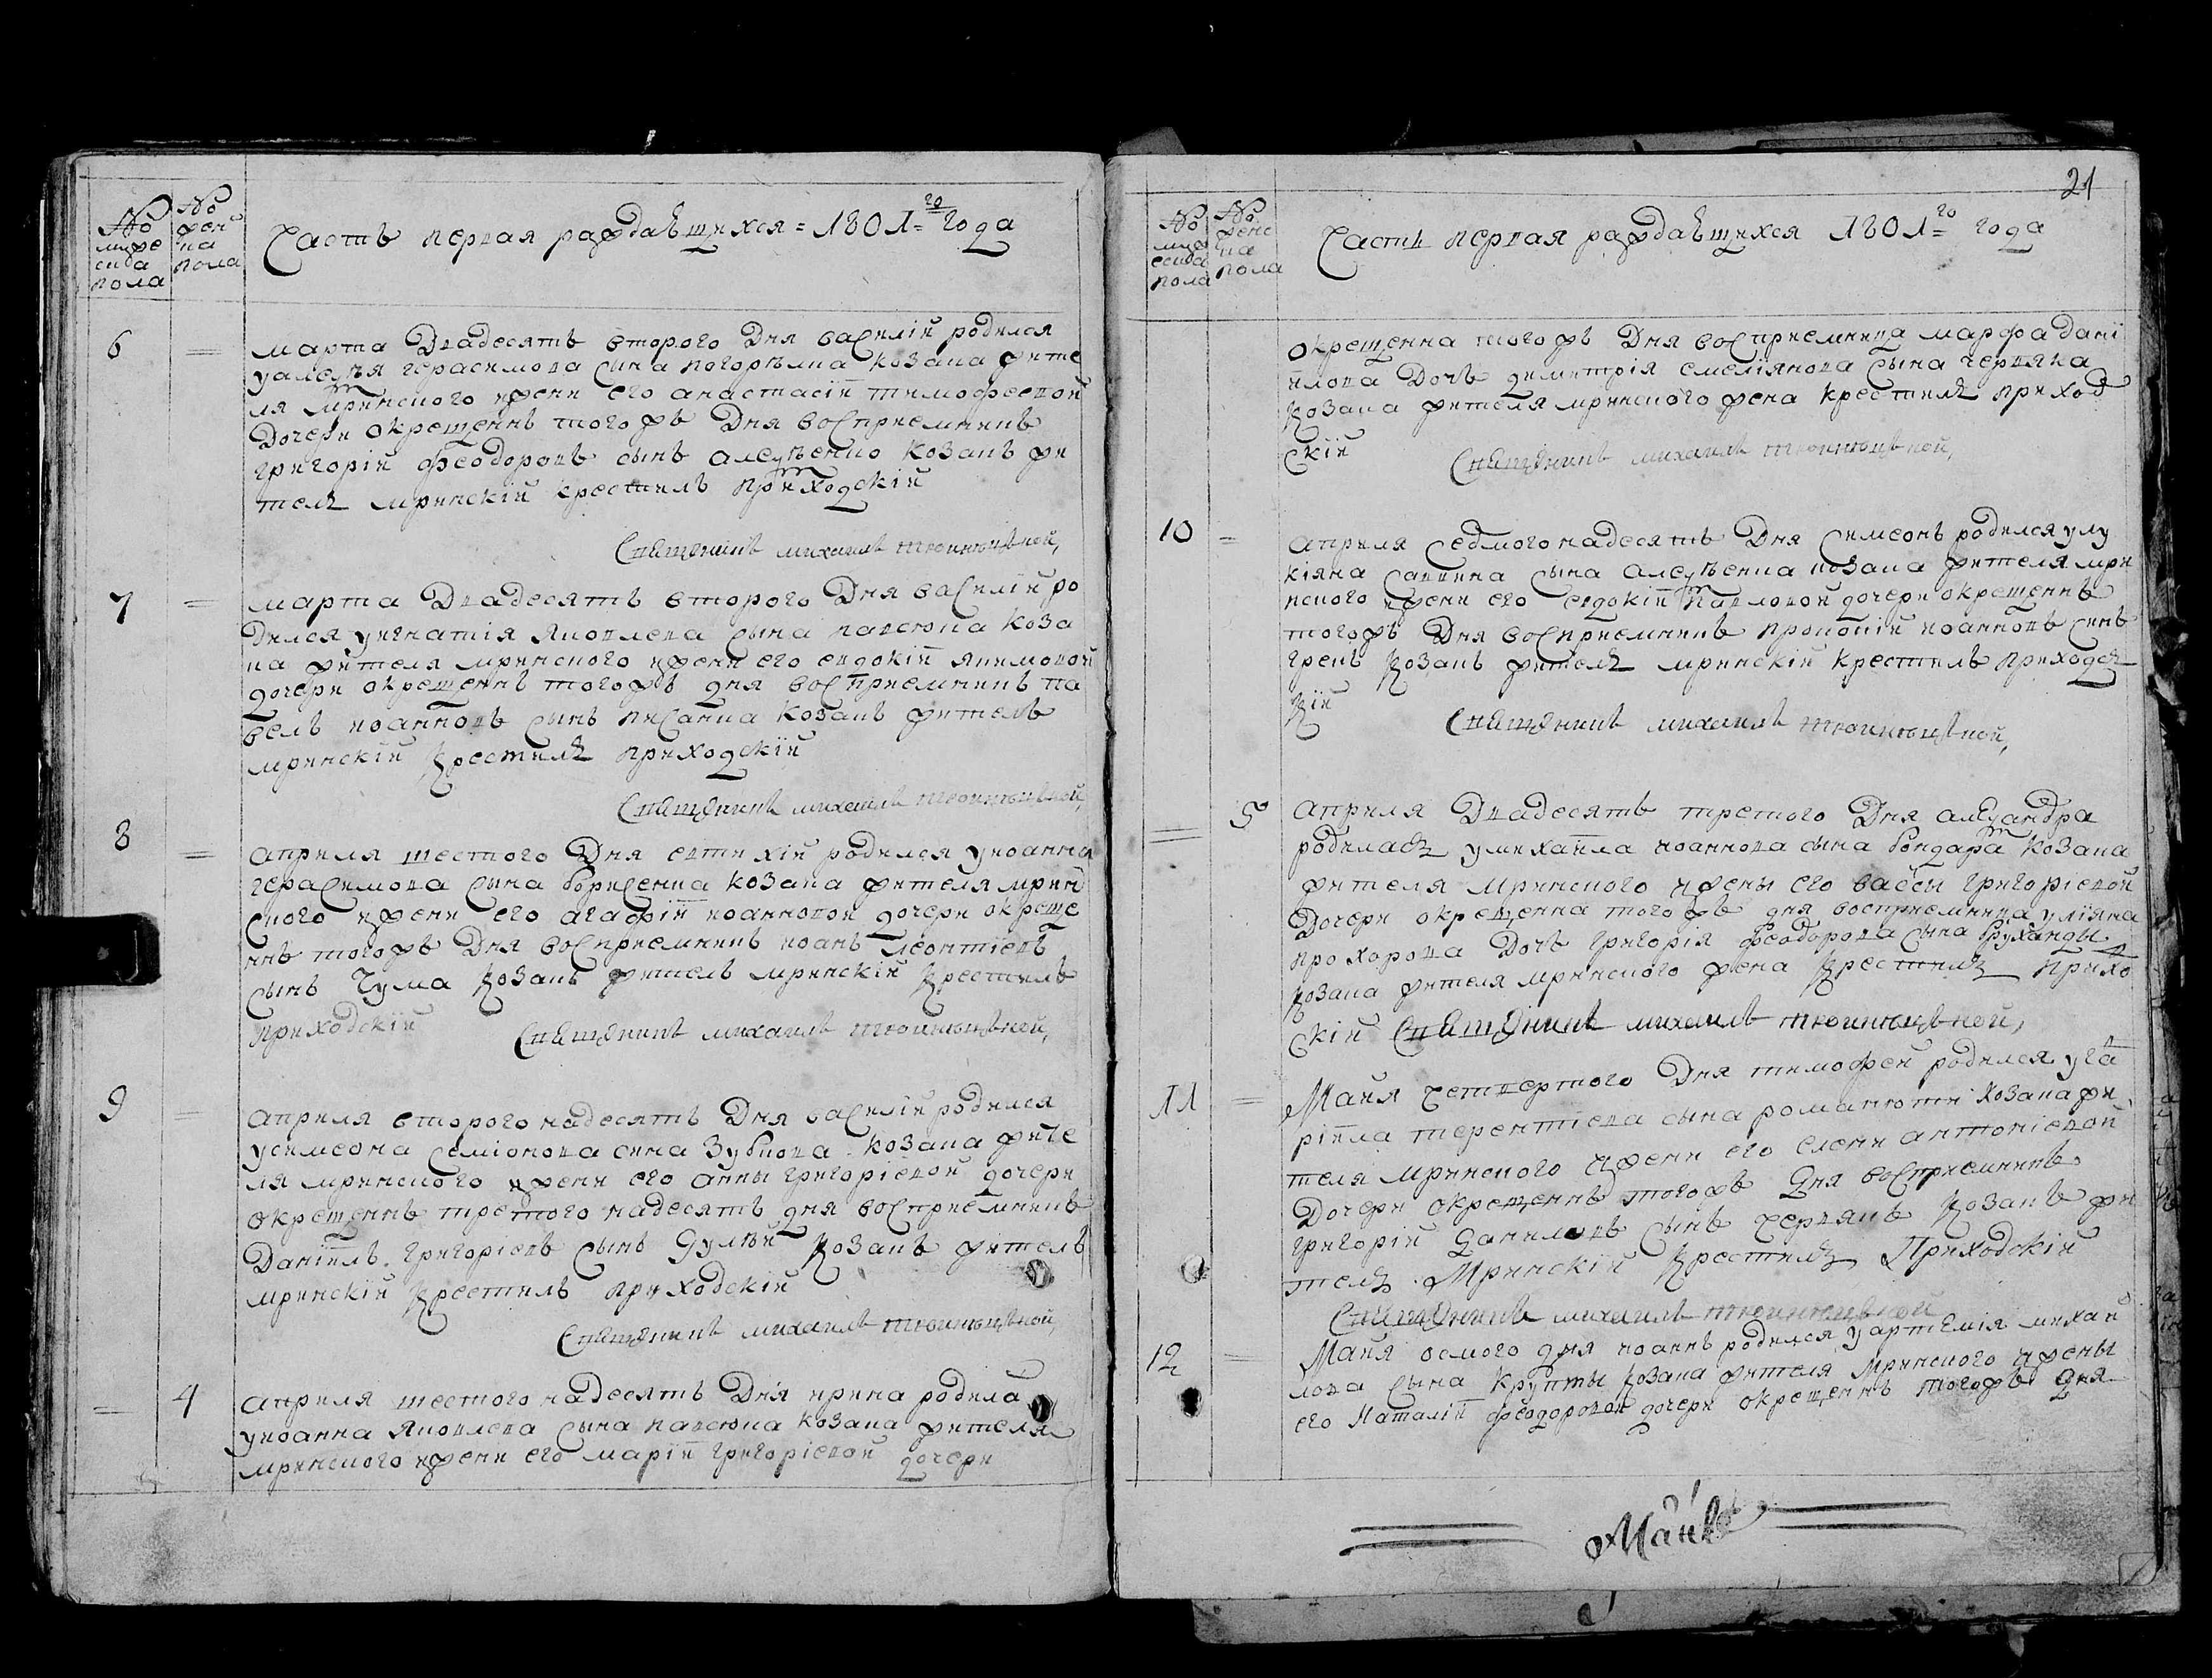 № мужеска пола
№ женска пола
Часть первая раждаѣщихся = 1801=го года
6 = марта Двадесять второго Дня василiй родился
уалеѯѣя герасимова сына погорѣлца козака жите
ля мринского ижени его анастасiй тимофеевой
Дочери окрещеннъ тогожъ Дня восприемникъ
григорiй феодоровъ сынъ алеѯѣенко козакъ жи
тель мринскiй крестилъ приходскiй
Священикъ михаилъ
7 = марта Двадесять второго Дня василiй ро
дился уигнатiя яковлева сына павсюка коза
ка жителя мринского ижени его евдокiй якимовой
дочери окрещеннъ тогожъ дня восприемникъ па
велъ иоанновъ сынъ писанка козакъ житель
мринскiй крестилъ приходскiй
Священикъ михаилъ
8 = априля шестого Дня евтихiй родился уиоанна
герасимова сына борисенка козака жителя мрин
ского ижени его агафiй иоанновой дочери окреще
ннъ тогожъ Дня восприемникъ иоанъ леонтiевъ
сынъ Чума козакъ житель мринскiй крестилъ
приходскiй Священикъ михаилъ
9 = априля второгонадесять Дня василiй родился
усимеона семiонова сина Зубкова козака жите
ля мринского ижени его анны григорiевой дочери
окрещеннъ третогонадесять дня восприемникъ
Данiилъ григорiевъ сынъ Дулѣй козакъ житель
мринскiй крестилъ приходскiй
Священикъ михаилъ
= 4 априля шестогонадесять Дня ирина родила
уиоанна яковлева сына павсюка козака жителя
мринского ижени его марiй григорiевой дочери
21
№ мужеска пола
№ женска пола
Часть первая раждаѣщихся 1801=го года
окрещенна тогожъ Дня восприемница марфа данi
илова Дочъ димитрiя емелiянова сына червяка
козака жителя мринского жена крестилъ приход
скiй Священикъ михаилъ
10 = априля седмогонадесять Дня симеонъ родился улу
кiяна саввина сына алеѯѣенка козака жителя мри
нского ижени его евдокiй павловой дочери окрещеннъ
тогожъ Дня восприемникъ прокопiй иоанновъ синъ
грекъ козакъ житель мринскiй крестилъ приходс
кiй
Священикъ михаилъ
= 5 априля Двадесять третого Дня алеѯандра
родилась умихаила иоаннова сына бондаря козака
жителя мринского ижены его вассы григорiевой
Дочери окрещенна тогожъ дня восприемница улiяна
прохорова Дочъ григорiя феодорова сына бруханды
козака жителя мринского жена крестилъ прихо
скiй Священикъ михаилъ
11 = Маия четвертого Дня тимофей родился уга
врiила терентiева сына романюти козака жи
теля мринского ижени его елени антонiевой
Дочери окрещеннъ тогожъ Дня восприемникъ
григорiй Даниловъ сынъ червякъ козакъ жи
тель Мринскiй крестилъ Приходскiй
Священикъ михаилъ
12 = Маия осмого дня иоаннъ родился уартемiя михай
лова сына крупты козака жителя мринского ижены
его наталiй феодоровой дочери окрещеннъ тогожъ Дня